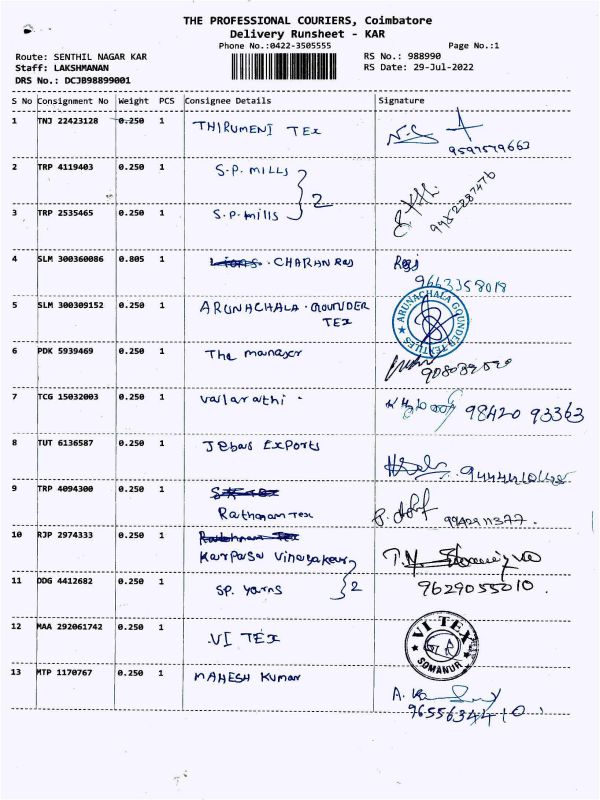 THE PROFESSIONAL COURIERS, Coimbatore
Delivery Runsheet - KAR
Phone No.:0422-3505555
Page No.:1
Route: SENTHIL NAGAR KAR
RS No.: 988990
Staff: LAKSHMANAN
RS Date: 29-Jul-2022
DRS No.: DCJB98899001
S No Consignment No Weight PCS Consignee Details Signature
1 TNJ 22423128 0.250 1 THIRUMENI TEX
9597579663
2 TRP 4119403 0.250 1 S.P. MILLS
2
9952287476
3 TRP 2535465 0.250 1 S.P. mills
4 SLM 300360086 0.805 1 CHARAN Raj Raj
9663358018
5 SLM 300309152 0.250 1 ARUNACHALA. GOUNDER
TEX
ARUNACHALA GOUNDER TEXTILES
6 PDK 5939469 0.250 1 The manager
7 TCG 15032003 0.250 1 valarathi 98420 93363
8 TUT 6136587 0.250 1 Jebas Exports
9 TRP 4094300 0.250 1
Rathanam Tex
9942911377.
10 RJP 2974333 0.250 1 Rathnam Tex
Karpaga Vinayakar
11 DDG 4412682 0.250 1 SP. yarns 2
9629055010.
12 MAA 292061742 0.250 1 VI TEX
VI TEX
SOMANUR
13 MTP 1170767 0.250 1 MAHESH Kumar
9655634410